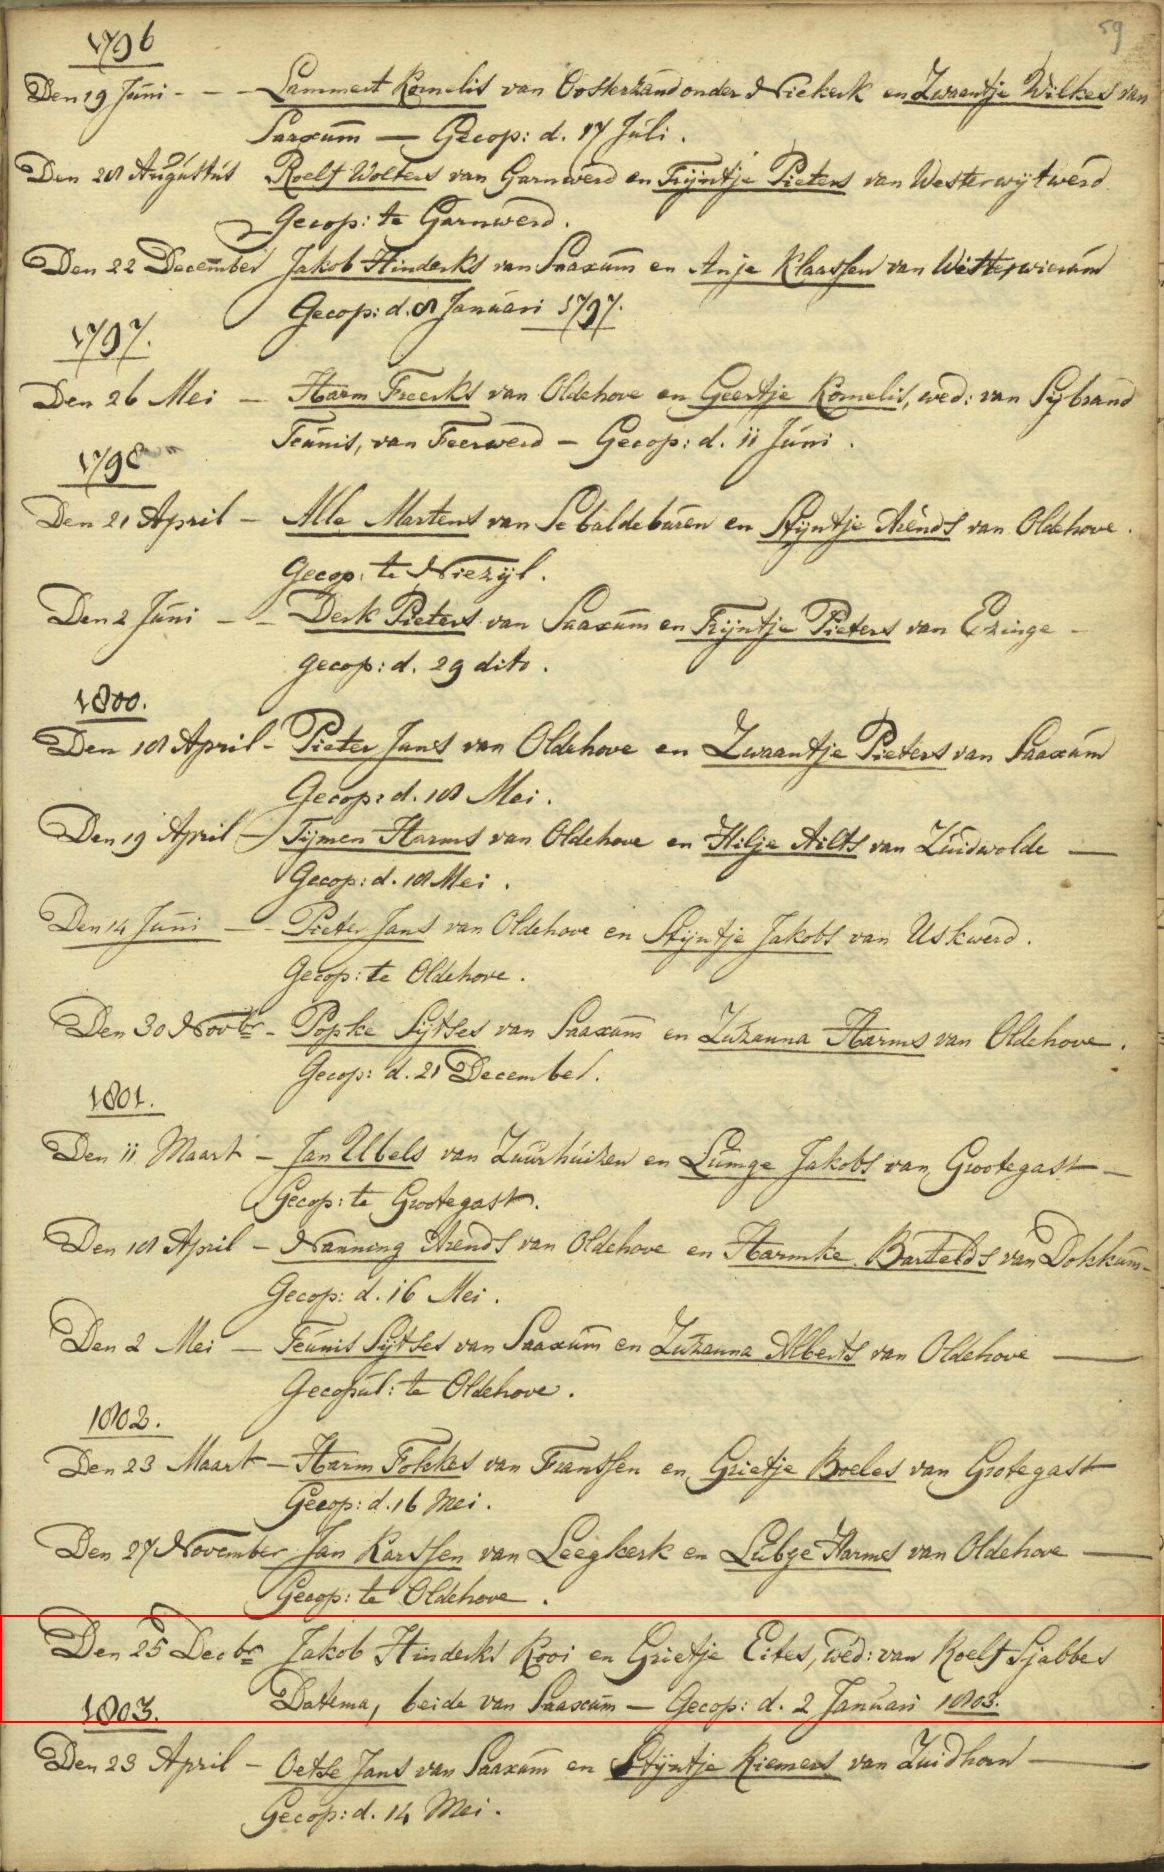 59
1796
Den 19 Juni - - - Lammert Kornelis van Oosterzand onder Niekerk en Zwaantje Wilkes van
Saaxum — Gecop: d. 17 Juli.
Den 28 Augustus Roelf Wolters van Garnwerd en Trijntje Pieters van Westerwijtwerd
Gecop: te Garnwerd.
Den 22 December Jakob Hinderks van Saaxum en Anje Klaassen van Witterwierum
Gecop: d. 8 Januari 1797.
1797.
Den 26 Mei — Harm Freerks van Oldehove en Geertje Kornelis, wed: van Sijbrand
Teunis, van Feerwerd — Gecop: d. 11 Juni.
1798
Den 21 April — Alle Martens van Sebaldeburen en Stijntje Arends van Oldehove.
Gecop: te Niezijl.
Den 2 Juni - - Derk Pieters van Saaxum en Trijntje Pieters van Ezinge -
gecop: d. 29 dito.
1800.
Den 18 April - Pieter Jans van Oldehove en Zwaantje Pieters van Saaxum
Gecop: d. 18 Mei.
Den 19 April - Tijmen Harms van Oldehove en Hilje Ailts van Zuidwolde —
Gecop: d. 18 Mei.
Den 14 Juni — - Pieter Jans van Oldehove en Stijntje Jakobs van Uskwerd.
Gecop: te Oldehove.
Den 30 Novbr - Popke Sijtses van Saaxum en Zuzanna Harms van Oldehove.
Gecop: d. 21 December.
1801.
Den 11 Maart — Jan Ubels van Zuurhuizen en Lumge Jakobs van Grootegast —
Gecop: te Grootegast.
Den 18 April — Nanning Arends van Oldehove en Harmke Bartelds van Dokkum -
Gecop: d. 16 Mei.
Den 2 Mei — Teunis Sijtses van Saaxum en Zuzanna Alberts van Oldehove —
Gecopul: te Oldehove.
1802.
Den 23 Maart — Harm Fokkes van Franssen en Grietje Boeles van Grotegast
Gecop: d. 16 Mei.
Den 27 November Jan Karssen van Leegkerk en Lubge Harms van Oldehove —
Gecop: te Oldehove.
Den 25 Decbr Jakob Hinderks Kooi en Grietje Eites, wed: van Roelf Sjabbes
Dattema, beide van Saaxum — Gecop: d. 2 Januari 1803.
1803.
Den 23 April — Oetse Jans van Saaxum en Stijntje Riemers van Zuidhorn —
Gecop: d. 14 Mei.